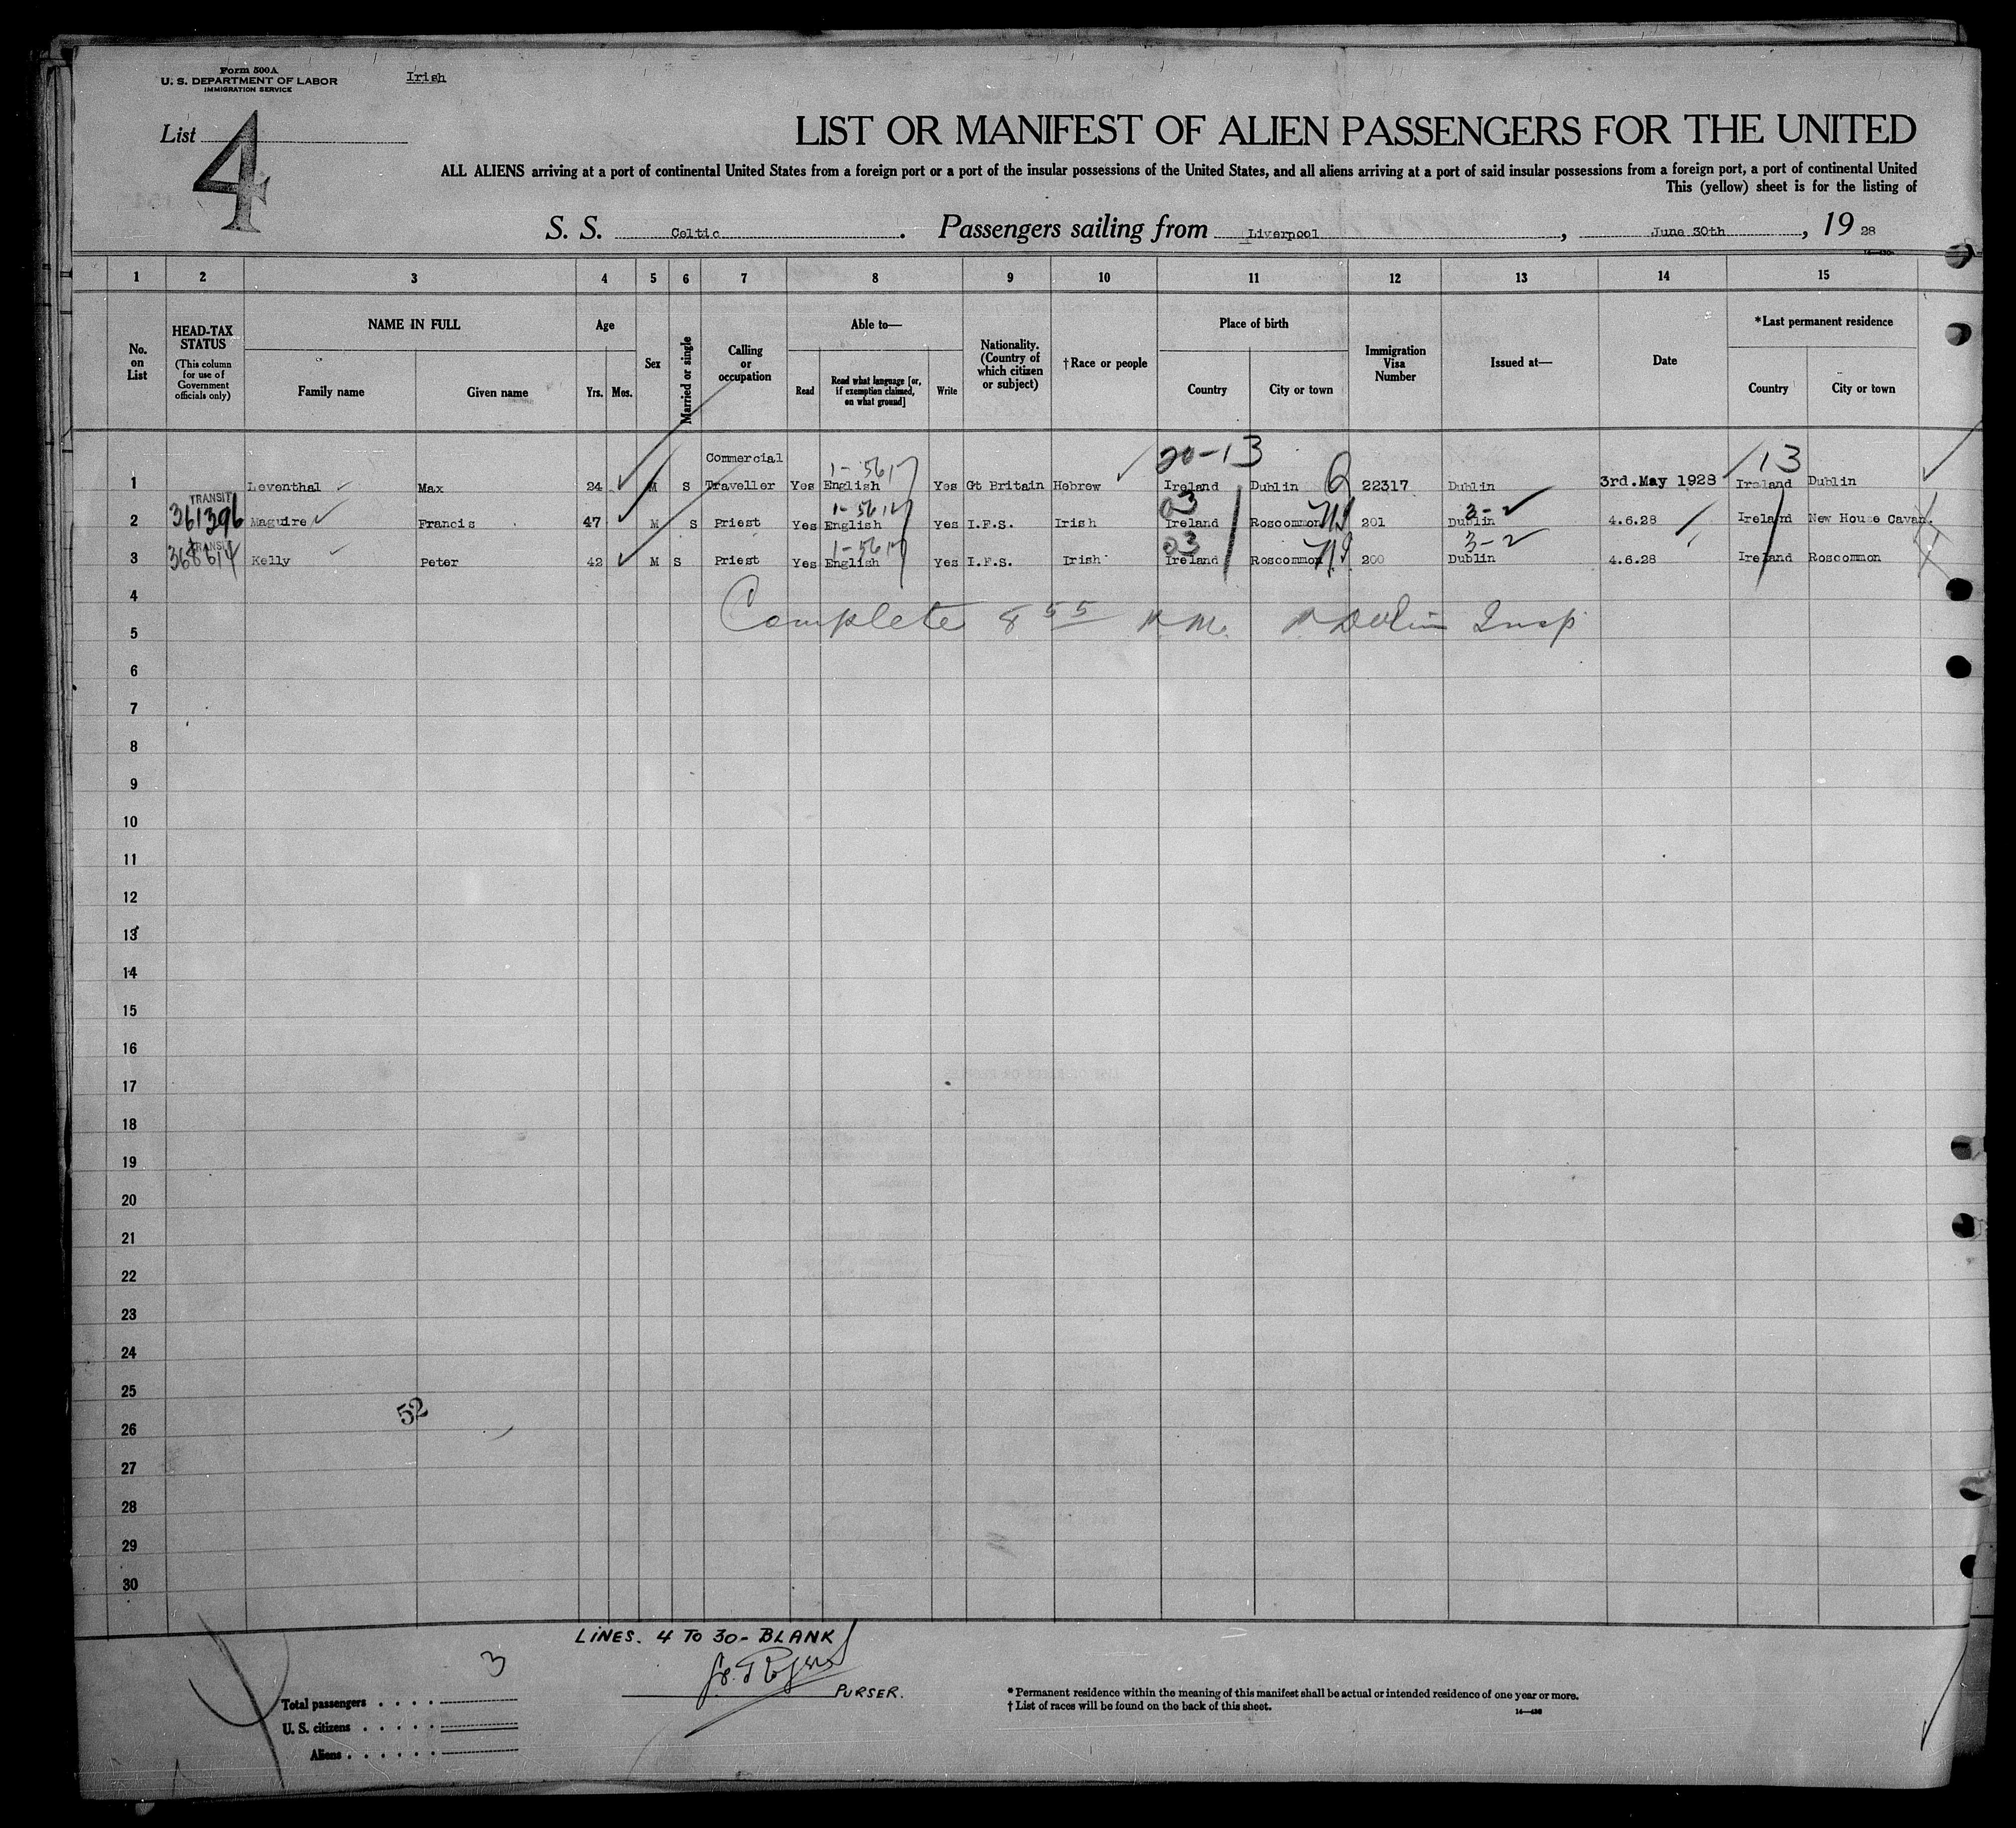 Form 500A
U. S. DEPARTMENT OF LABOR
IMMIGRATION SERVICE
Irish
List 4
LIST OR MANIFEST OF ALIEN PASSENGERS FOR THE UNITED
ALL ALIENS arriving at a port of continental United States from a foreign port or a port of the insular possessions of the United States, and all aliens arriving at a port of said insular possessions from a foreign port, a port of continental United
This (yellow) sheet is for the listing of
S. S. Celtic. Passengers sailing from Liverpool, June 30th, 19 28
1 2 3 4 5 6 7 8 9 10 11 12 13 14 15
No. on List
HEAD-TAX STATUS
(This column for use of Government officials only)
NAME IN FULL
Family name
Given name
Age
Yrs. Mos.
Sex
Married or single
Calling or occupation
Able to—
Read
Read what language [or, if exemption claimed, on what ground]
Write
Nationality. (Country of which citizen or subject)
†Race or people
Place of birth
Country
City or town
Immigration Visa Number
Issued at—
Date
*Last permanent residence
Country
City or town
20-13 13
1 Leventhal Max 24 M S Commercial Traveller Yes English Yes Gt Britain Hebrew Ireland Dublin Q 22317 Dublin 3rd. May 1928 Ireland Dublin
TRANSIT
03 3-2
2 361396 Maguire Francis 47 M S Priest Yes English Yes I.F.S. Irish Ireland Roscommon 201 Dublin 4.6.28 Ireland New House Cavan.
TRANSIT
03 3-2
3 368614 Kelly Peter 42 M S Priest Yes English Yes I.F.S. Irish Ireland Roscommon 200 Dublin 4.6.28 Ireland Roscommon
4
Complete 8 55 Insp
5
6
7
8
9
10
11
12
13
14
15
16
17
18
19
20
21
22
23
24
25
52
26
27
28
29
30
LINES. 4 TO 30- BLANK
PURSER.
3
Total passengers . . . .
U. S. citizens . . . . .
Aliens . . . . . .
*Permanent residence within the meaning of this manifest shall be actual or intended residence of one year or more.
†List of races will be found on the back of this sheet.
14—430